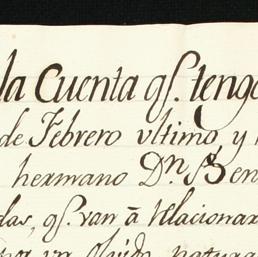 la Cuenta qe. tengo
de Febrero ultimo, y
hermano Dn.
das, qe. van â relacionar